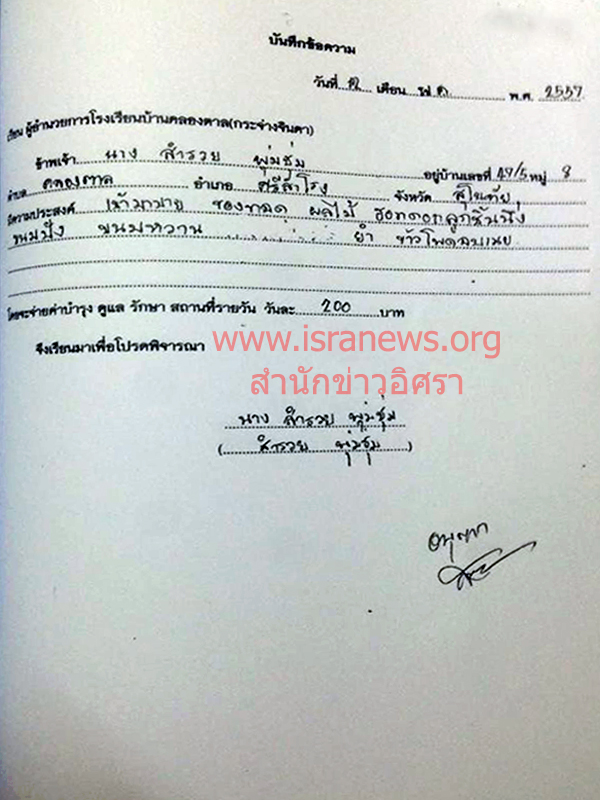 บันทึกข้อความ
วันที่ เดือน พ.ค. พ.ศ. 2557
เรียน ผู้อำนวยการโรงเรียนบ้านคลองตาล(กระจ่างจินดา)
ข้าพเจ้า นาง สำรวย พุ่มชุ่ม อยู่บ้านเลขที่ 49/5 หมู่ 8
ตำบล คลองตาล อำเภอ ศรีสำโรง จังหวัด สุโขทัย
มีความประสงค์ เข้ามาขาย ของทอด ผลไม้ ฮอทดอก ลูกชิ้นปิ้ง
ขนมปัง ขนมหวาน ยำ ข้าวโพดอบเนย
โดยจะจ่ายค่าบำรุง ดูแล รักษา สถานที่รายวัน วันละ 200 บาท
จึงเรียนมาเพื่อโปรดพิจารณา
www.isranews.org
สำนักข่าวอิศรา
นาง สำรวย พุ่มชุ่ม
( สำรวย พุ่มชุ่ม )
อนุญาต